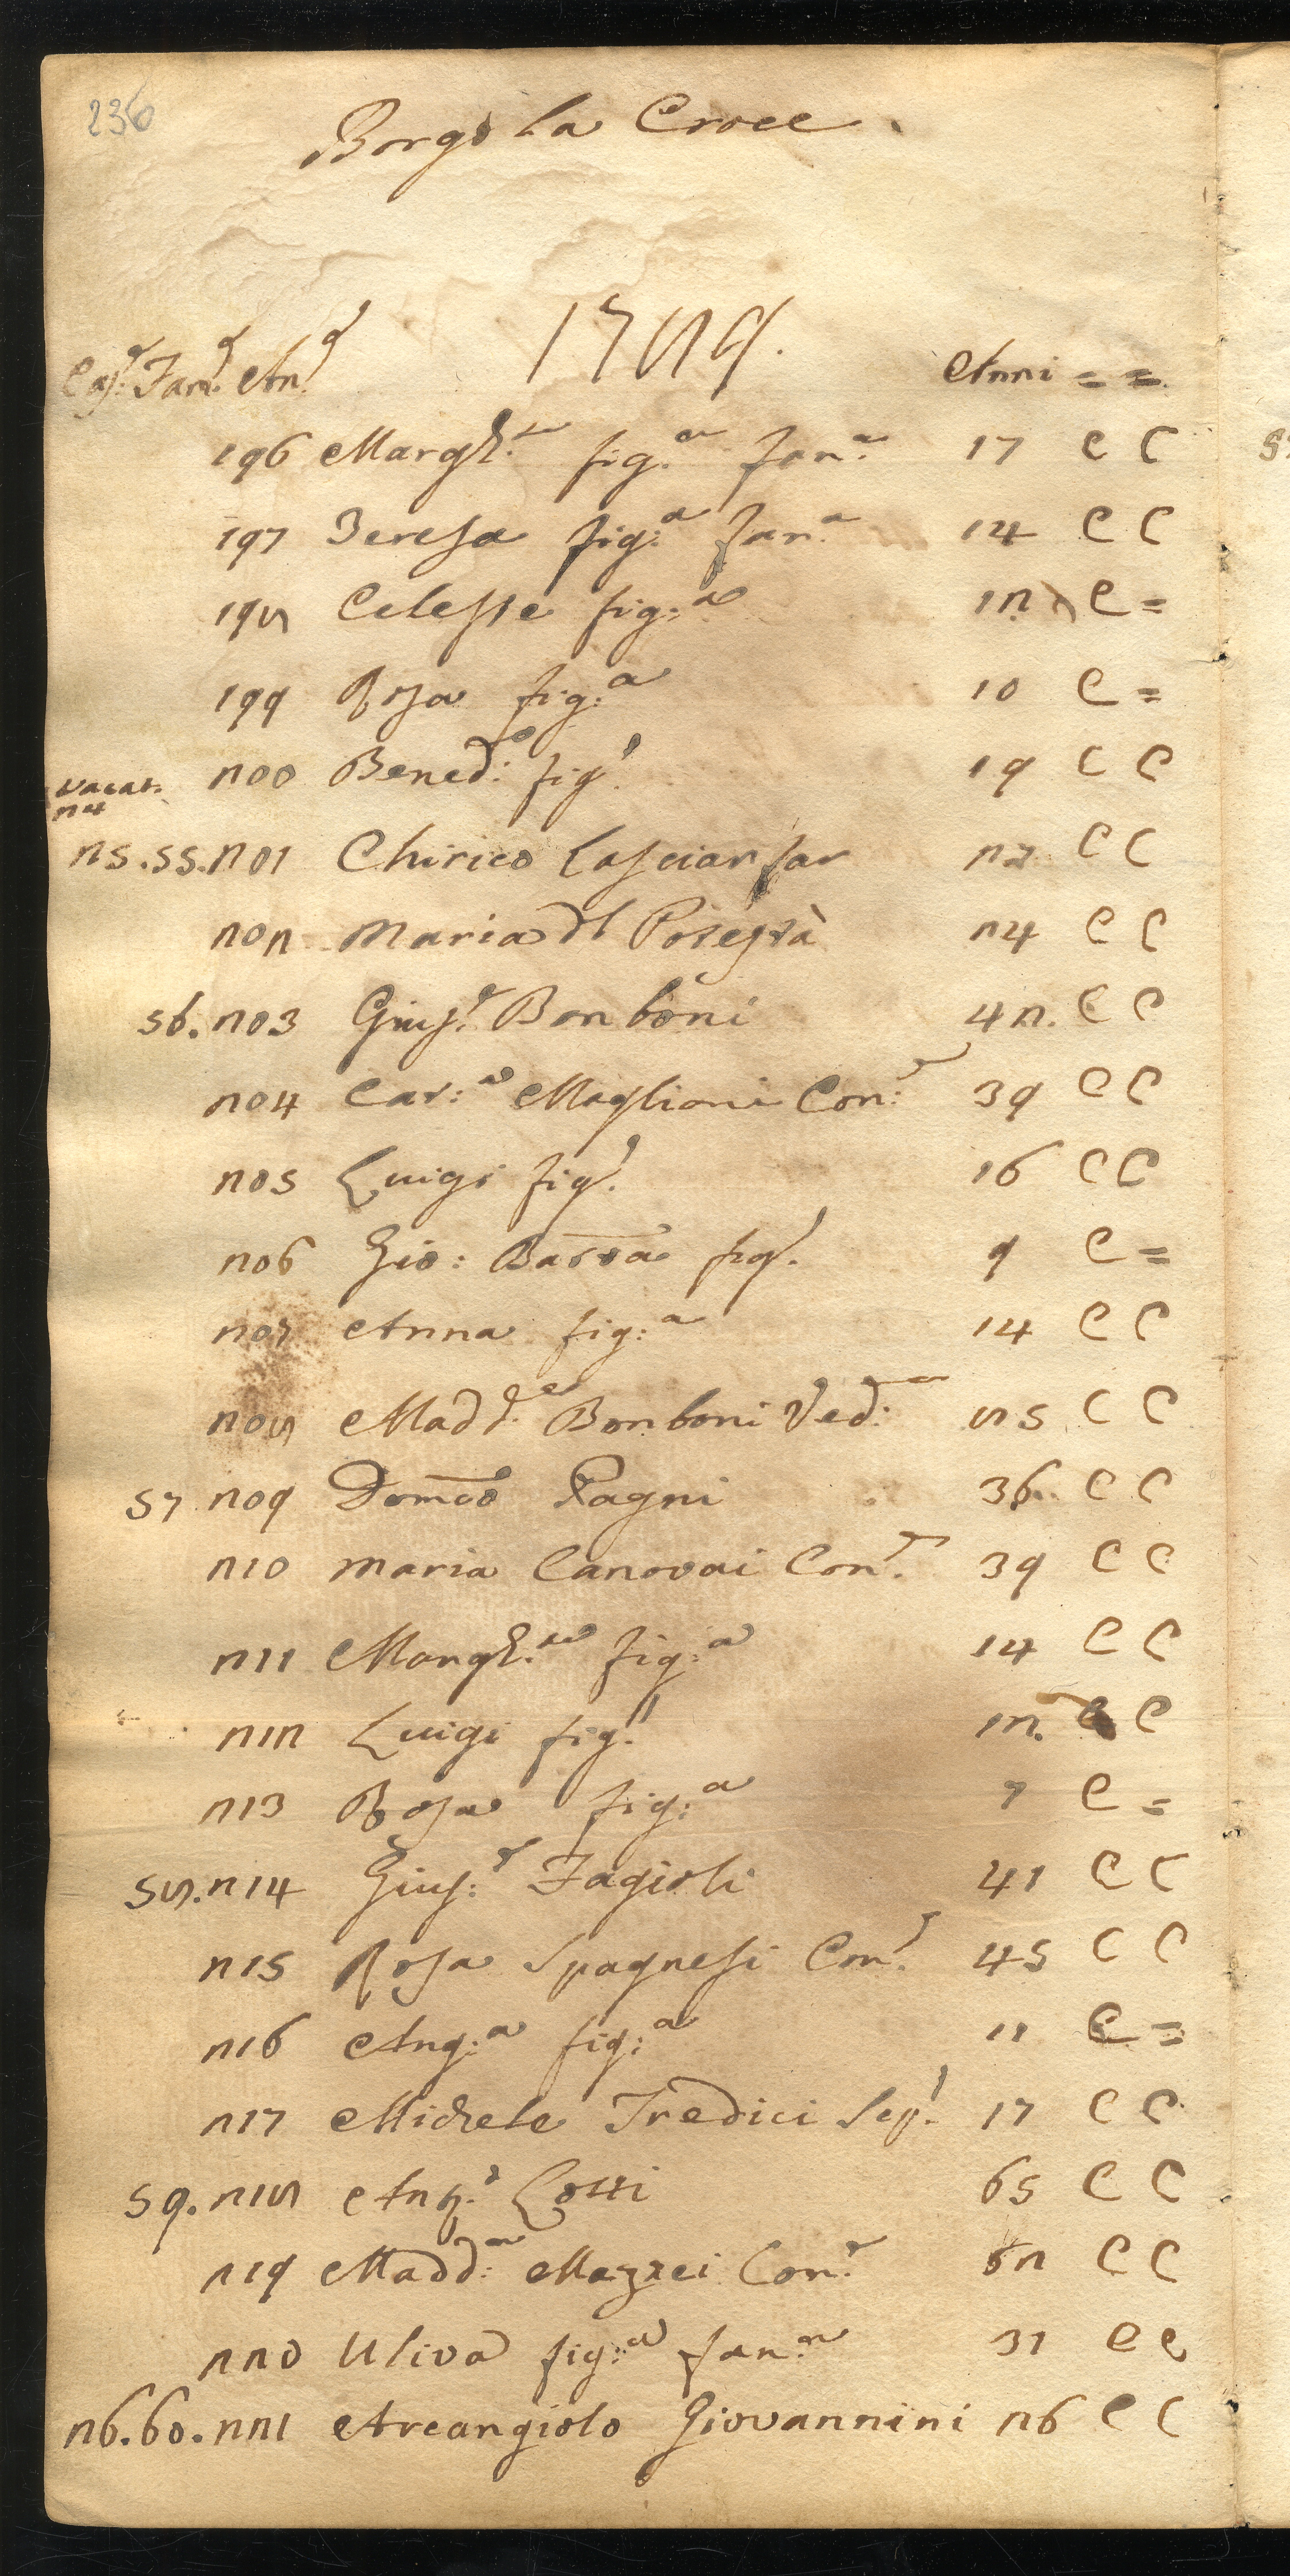 236
Borgo La Croce
1789.
Cas.e Fam.e An.e Anni = =
196 Margh.ta fig.a fan.a 17 C C
197 Teresa fig.a fan.a 14 C C
198 Celeste fig:a 12 C =
199 Rosa fig:a 10 C =
200 Bened:o fig.o 19 C C
vacat.
24
25.55.201 Chirico 27 C C
202 Maria C C 24
56.203 Gius.e Bonboni 42. C C
204 Cat:a Maglioni Con:e 39 C C
205 Luigi fig.o 16 C C
206 Gio: Batta fig.o 9 C =
207 Anna fig:a 14 C C
208 Madd.a Bonboni Ved:a 85 C C
57 209 Domco Pagni 36 C C
210 Maria Canovai Con.e 39 C C
211 Margh.ta fig:a 14 C C
212 Luigi fig.o 12. C C
213 Rosa fig:a 7 C =
58.214 Gius:e Fagioli 41 C C
215 Rosa Spagnesi Con.e 45 C C
216 Ang:a fig:a 11 C =
217 Michele Tredici 17 C C
59.218 Ang.o Lotti 65 C C
219 Madd:a Mazzei Con.e 62 C C
220 Uliva fig:a fan:a 31 C C
26.60.221 Arcangiolo Giovannini 26 C C